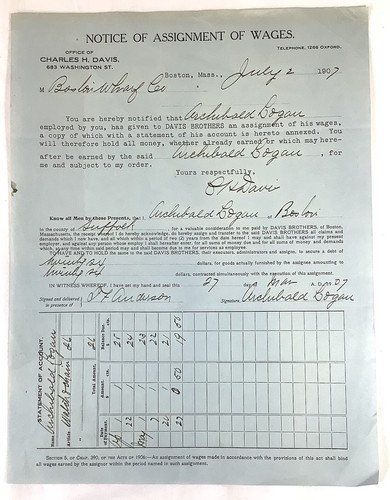 NOTICE OF ASSIGNMENT OF WAGES.
OFFICE OF
CHARLES H. DAVIS,
683 WASHINGTON ST.
TELEPHONE, 1266 OXFORD.
Boston, Mass., July 2 1907
M Boston Wharf Co
You are hereby notified that Archibald Logan
employed by you, has given to DAVIS BROTHERS an assignment of his wages,
a copy of which with a statement of his account is hereto annexed. You
will therefore hold all money, whether already earned or which may here-
after be earned by the said Archibald Logan for
me and subject to my order.
Yours respectfully,
C H Davis
Know all Men by these Presents, that I Archibald Logan, Boston
in the county of Suffolk for a valuable consideration to me paid by DAVIS BROTHERS, of Boston,
Massachusetts, the receipt whereof I do hereby acknowledge, do hereby assign and transfer to the said DAVIS BROTHERS all claims and
demands which I now have, and all which within a period of two (2) years from the date hereof I may and shall have against my present
employer, and against any person whose employ I shall hereafter enter, for all sums of money due and for all sums of money and demands
which, at any time within said period may and shall become due to me for services as employee.
TO HAVE AND TO HOLD the same to the said DAVIS BROTHERS, their executors, administrators and assigns, to secure a debt of
twenty six
dollars, for goods actually furnished by the assignees amounting to
twenty six
dollars, contracted simultaneously with the execution of this assignment.
IN WITNESS WHEREOF, I have set my hand and seal this 27 day of Mar A. D. 1907
Signed and delivered in presence of J F Anderson
Signature, Archibald Logan
STATEMENT OF ACCOUNT.
Name Archibald Logan
Article Watch & chain 26
26
Date of Payment.
Total Amount.
Balance Due
cts.
1 25
22 1 24
1 23
1 22
20 1 21
27 19 00
SECTION 5, OF CHAP. 390, OF THE ACTS OF 1906:—An assignment of wages made in accordance with the provisions of this act shall bind
all wages earned by the assignor within the period named in such assignment.